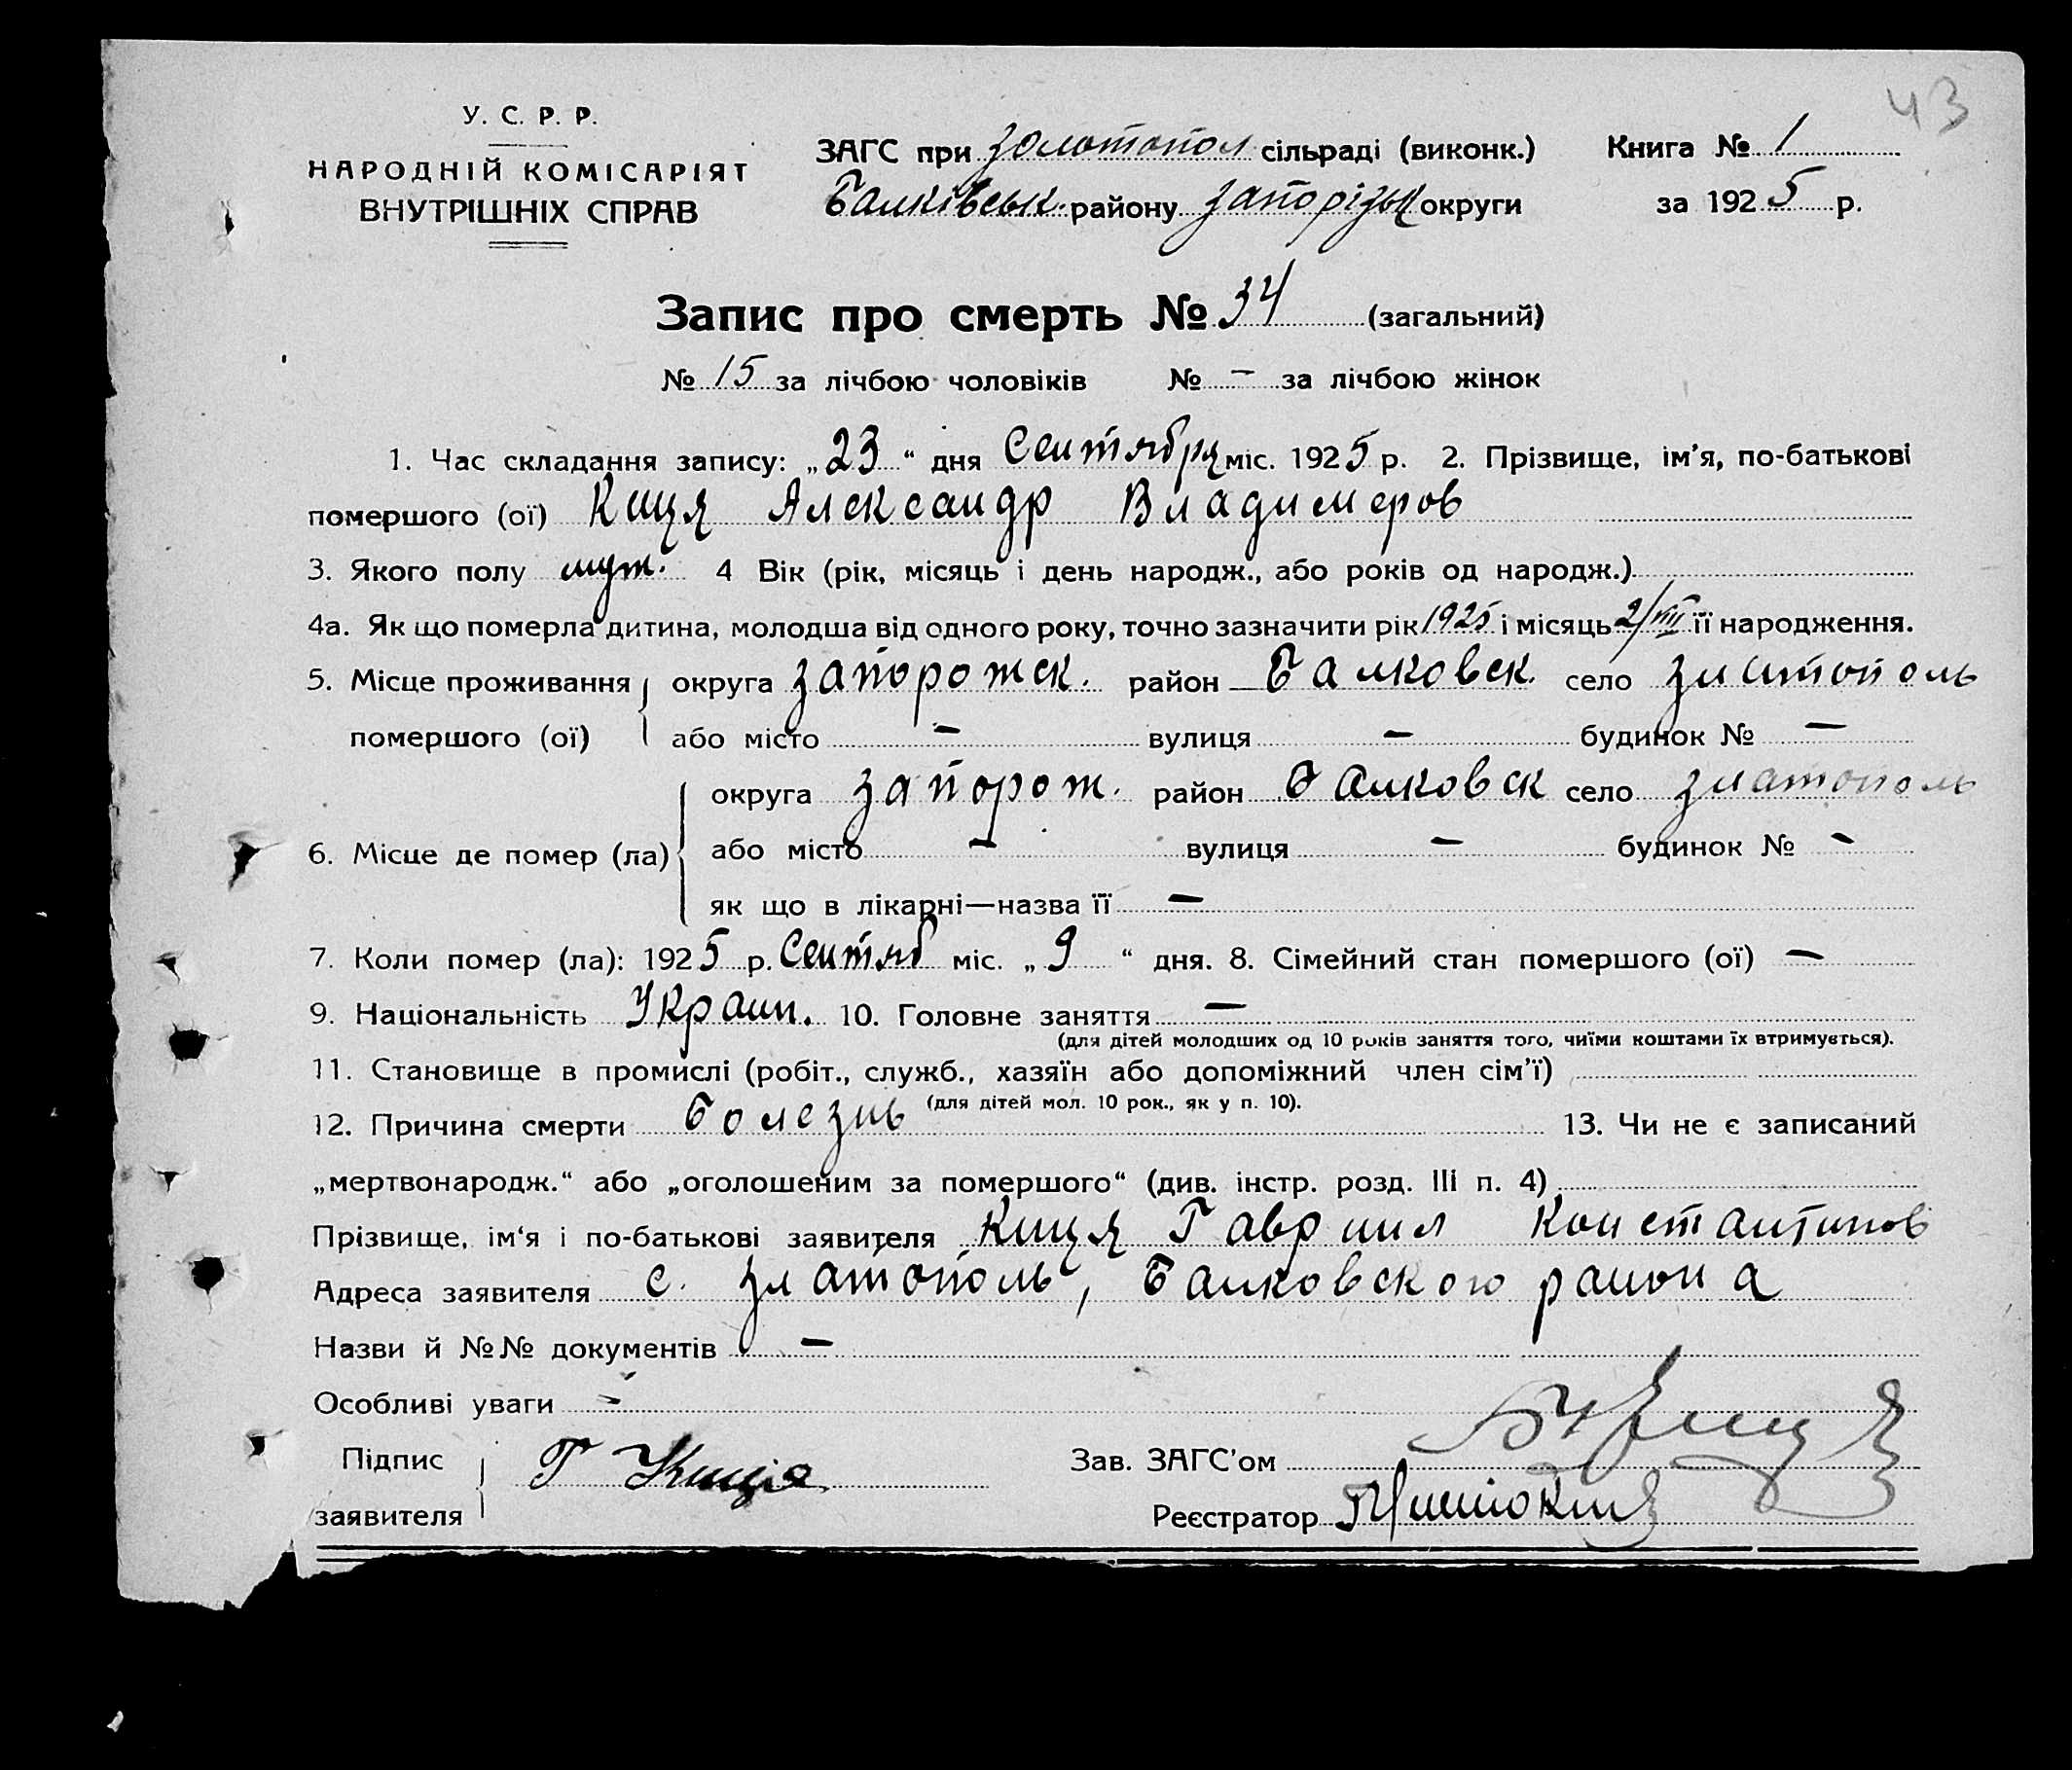 43
У. С. Р. Р.
НАРОДНІЙ КОМІСАРІЯТ
ВНУТРІШНІХ СПРАВ
ЗАГС при Золотопол сільраді (виконк.)
Балківськ. району Запорізьк округи
Книга № 1
за 1925 р.
Запис про смерть № 34 (загальний)
№ 15 за лічбою чоловіків № — за лічбою жінок
1. Час складання запису: „23“ дня Сентября міс. 1925 р. 2. Прізвище, ім'я, по-батькові
помершого (ої) Киця Александр Владимеров
3. Якого полу муж. 4 Вік (рік, місяць і день народж., або років од народж.)
4а. Як що померла дитина, молодша від одного року, точно зазначити рік 1925 і місяць 2/VIII її народження.
5. Місце проживання округа Запорожск. район Балковск. село Златополь
помершого (ої) або місто — вулиця — будинок № —
округа Запорож. район Балковск село Златополь
6. Місце де помер (ла) або місто — вулиця — будинок № —
як що в лікарні—назва її —
7. Коли помер (ла): 1925 р. Сентяб міс. „9“ дня. 8. Сімейний стан помершого (ої) —
9. Національність Украин. 10. Головне заняття —
(для дітей молодших од 10 років заняття того, чиїми коштами їх втримується).
11. Становище в промислі (робіт., служб., хазяїн або допоміжний член сім'ї)
(для дітей мол. 10 рок., як у п. 10).
12. Причина смерти Болезнь 13. Чи не є записаний
„мертвонародж.“ або „оголошеним за помершого“ (див. інстр. розд. III п. 4)
Прізвище, ім'я і по-батькові заявителя Киця Гавриил Константинов
Адреса заявителя с. Златополь, Балковского района
Назви й №№ документів —
Особливі уваги -
Підпис
заявителя Г Киця
Зав. ЗАГС'ом
Реєстратор